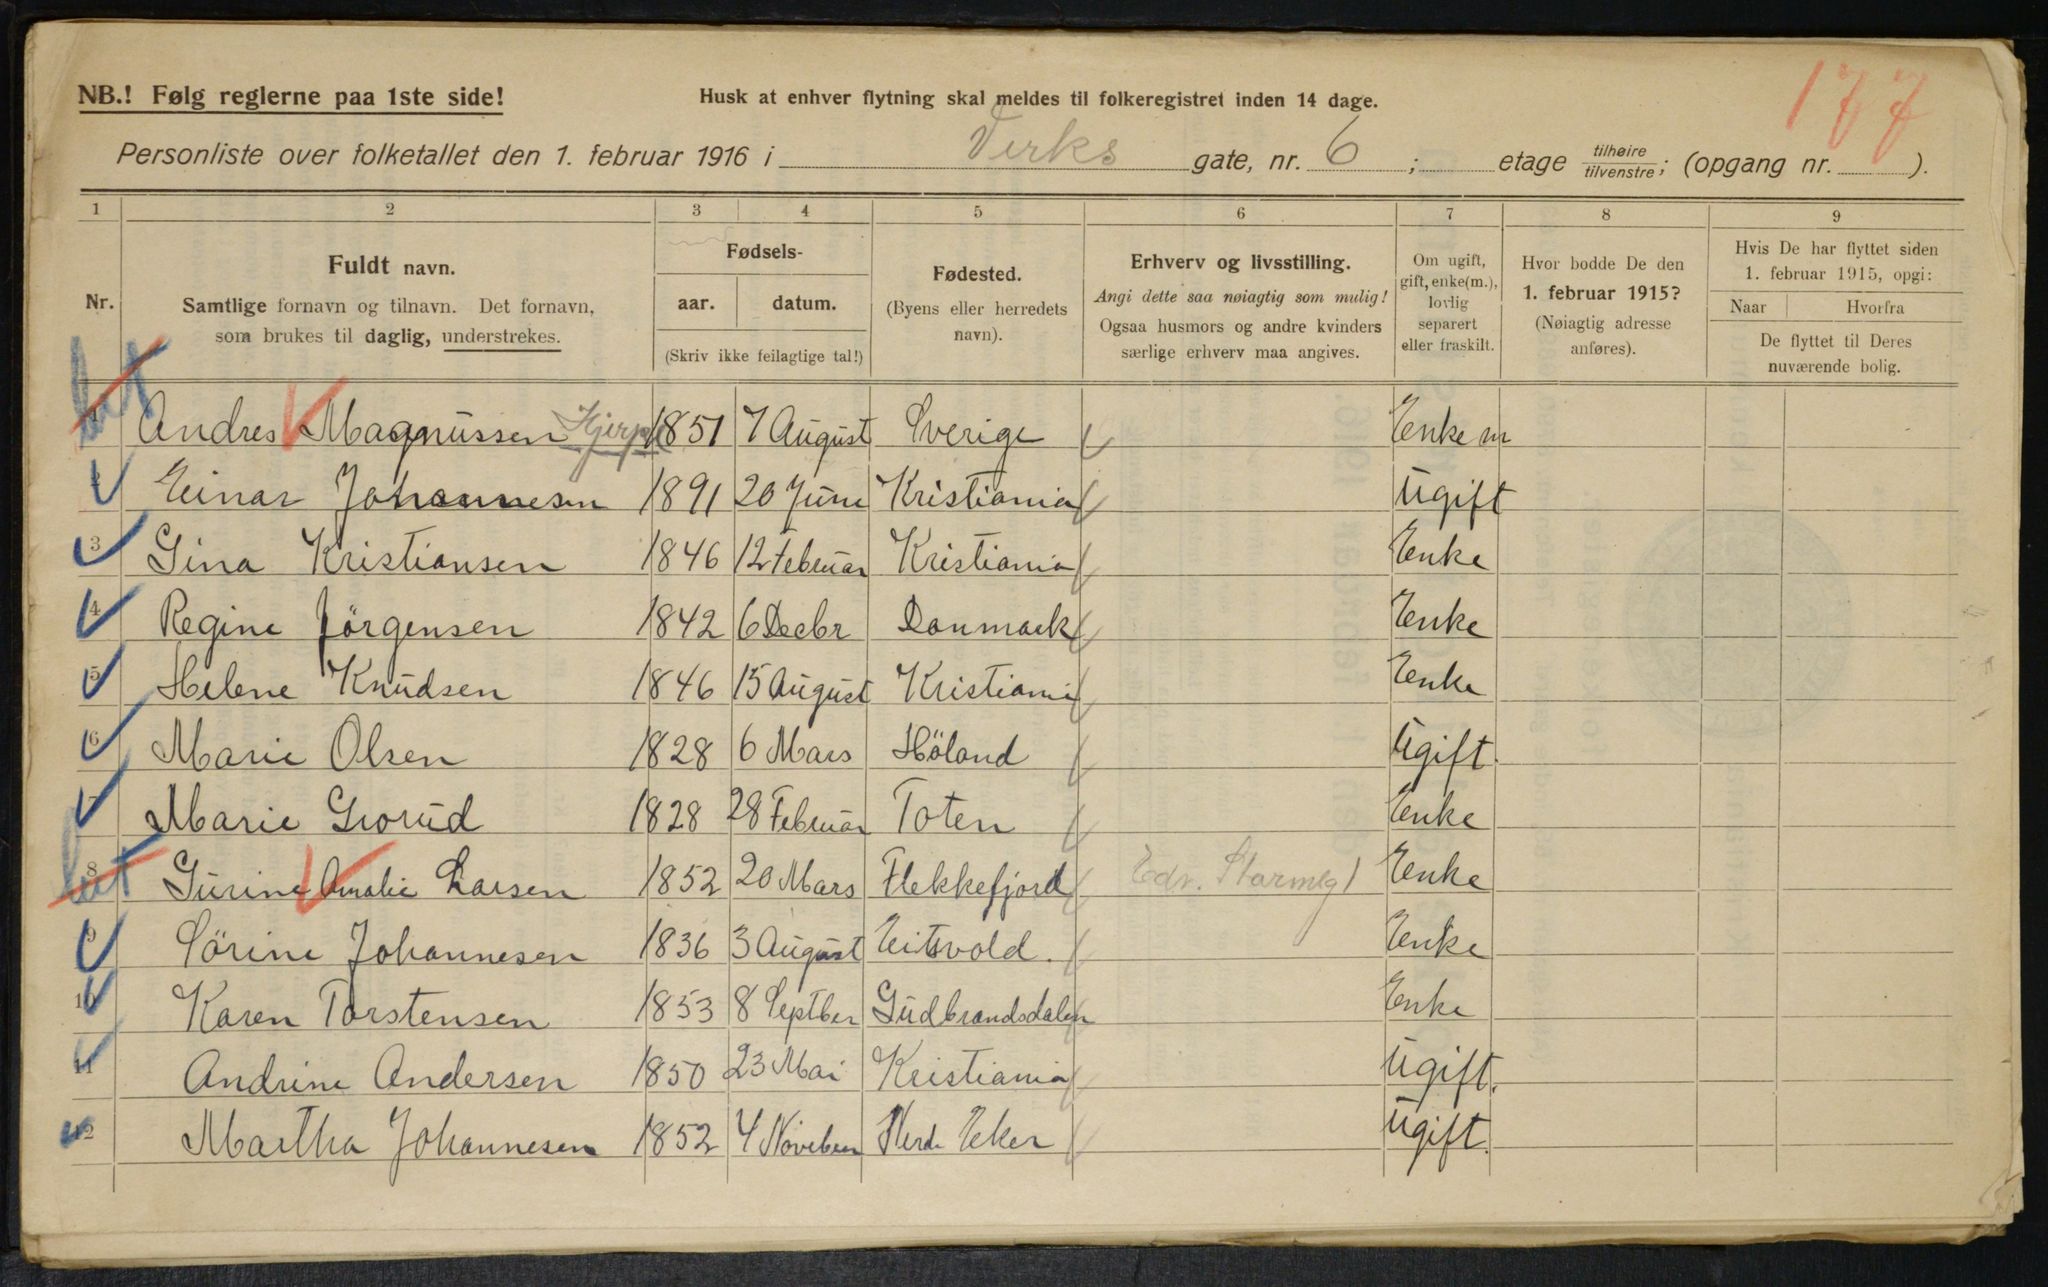 177
NB.! Følg reglerne paa 1ste side!
Husk at enhver flytning skal meldes til folkeregistret inden 14 dage.
Personliste over folketallet den 1. februar 1916 i Verks gate, nr. 6 ; etage tilhøire/tilvenstre; (opgang nr. ).
1 2 3 4 5 6 7 8 9
Nr.
Fuldt navn.
Samtlige fornavn og tilnavn. Det fornavn,
som brukes til daglig, understrekes.
Fødsels-
aar. datum.
(Skriv ikke feilagtige tal!)
Fødested.
(Byens eller herredets
navn).
Erhverv og livsstilling.
Angi dette saa nøiagtig som mulig!
Ogsaa husmors og andre kvinders
særlige erhverv maa angives.
Om ugift,
gift, enke(m.),
lovlig
separert
eller fraskilt.
Hvor bodde De den
1. februar 1915?
(Nøiagtig adresse
anføres).
Hvis De har flyttet siden
1. februar 1915, opgi:
Naar Hvorfra
De flyttet til Deres
nuværende bolig.
1 Andres Magnussen 1851 7 August Sverige Enkem
Einar Johannesen 1891 20 Juni Kristiania Ugift
3 Gina Kristiansen 1846 12 Februar Kristiania Enke
4 Regine Jörgensen 1842 6 Decbr Danmark Enke
5 Helene Knudsen 1846 15 August Kristiania Enke
6 Marie Olsen 1828 6 Mars Höland Ugift.
7 Marie Grorud 1828 28 Februar Toten Enke
8 Gurine Amalie Larsen 1852 20 Mars Flekkefjord Enke
9 Sörine Johannesen 1836 3 August Eitsvold. Enke
10 Karen Torstensen 1853 8 Septber Gudbrandsdalen Enke
11 Andrine Andersen 1850 23 Mai Kristiania Ugift.
12 Martha Johannesen 1852 4 Noveber Nerde Eker Ugift.